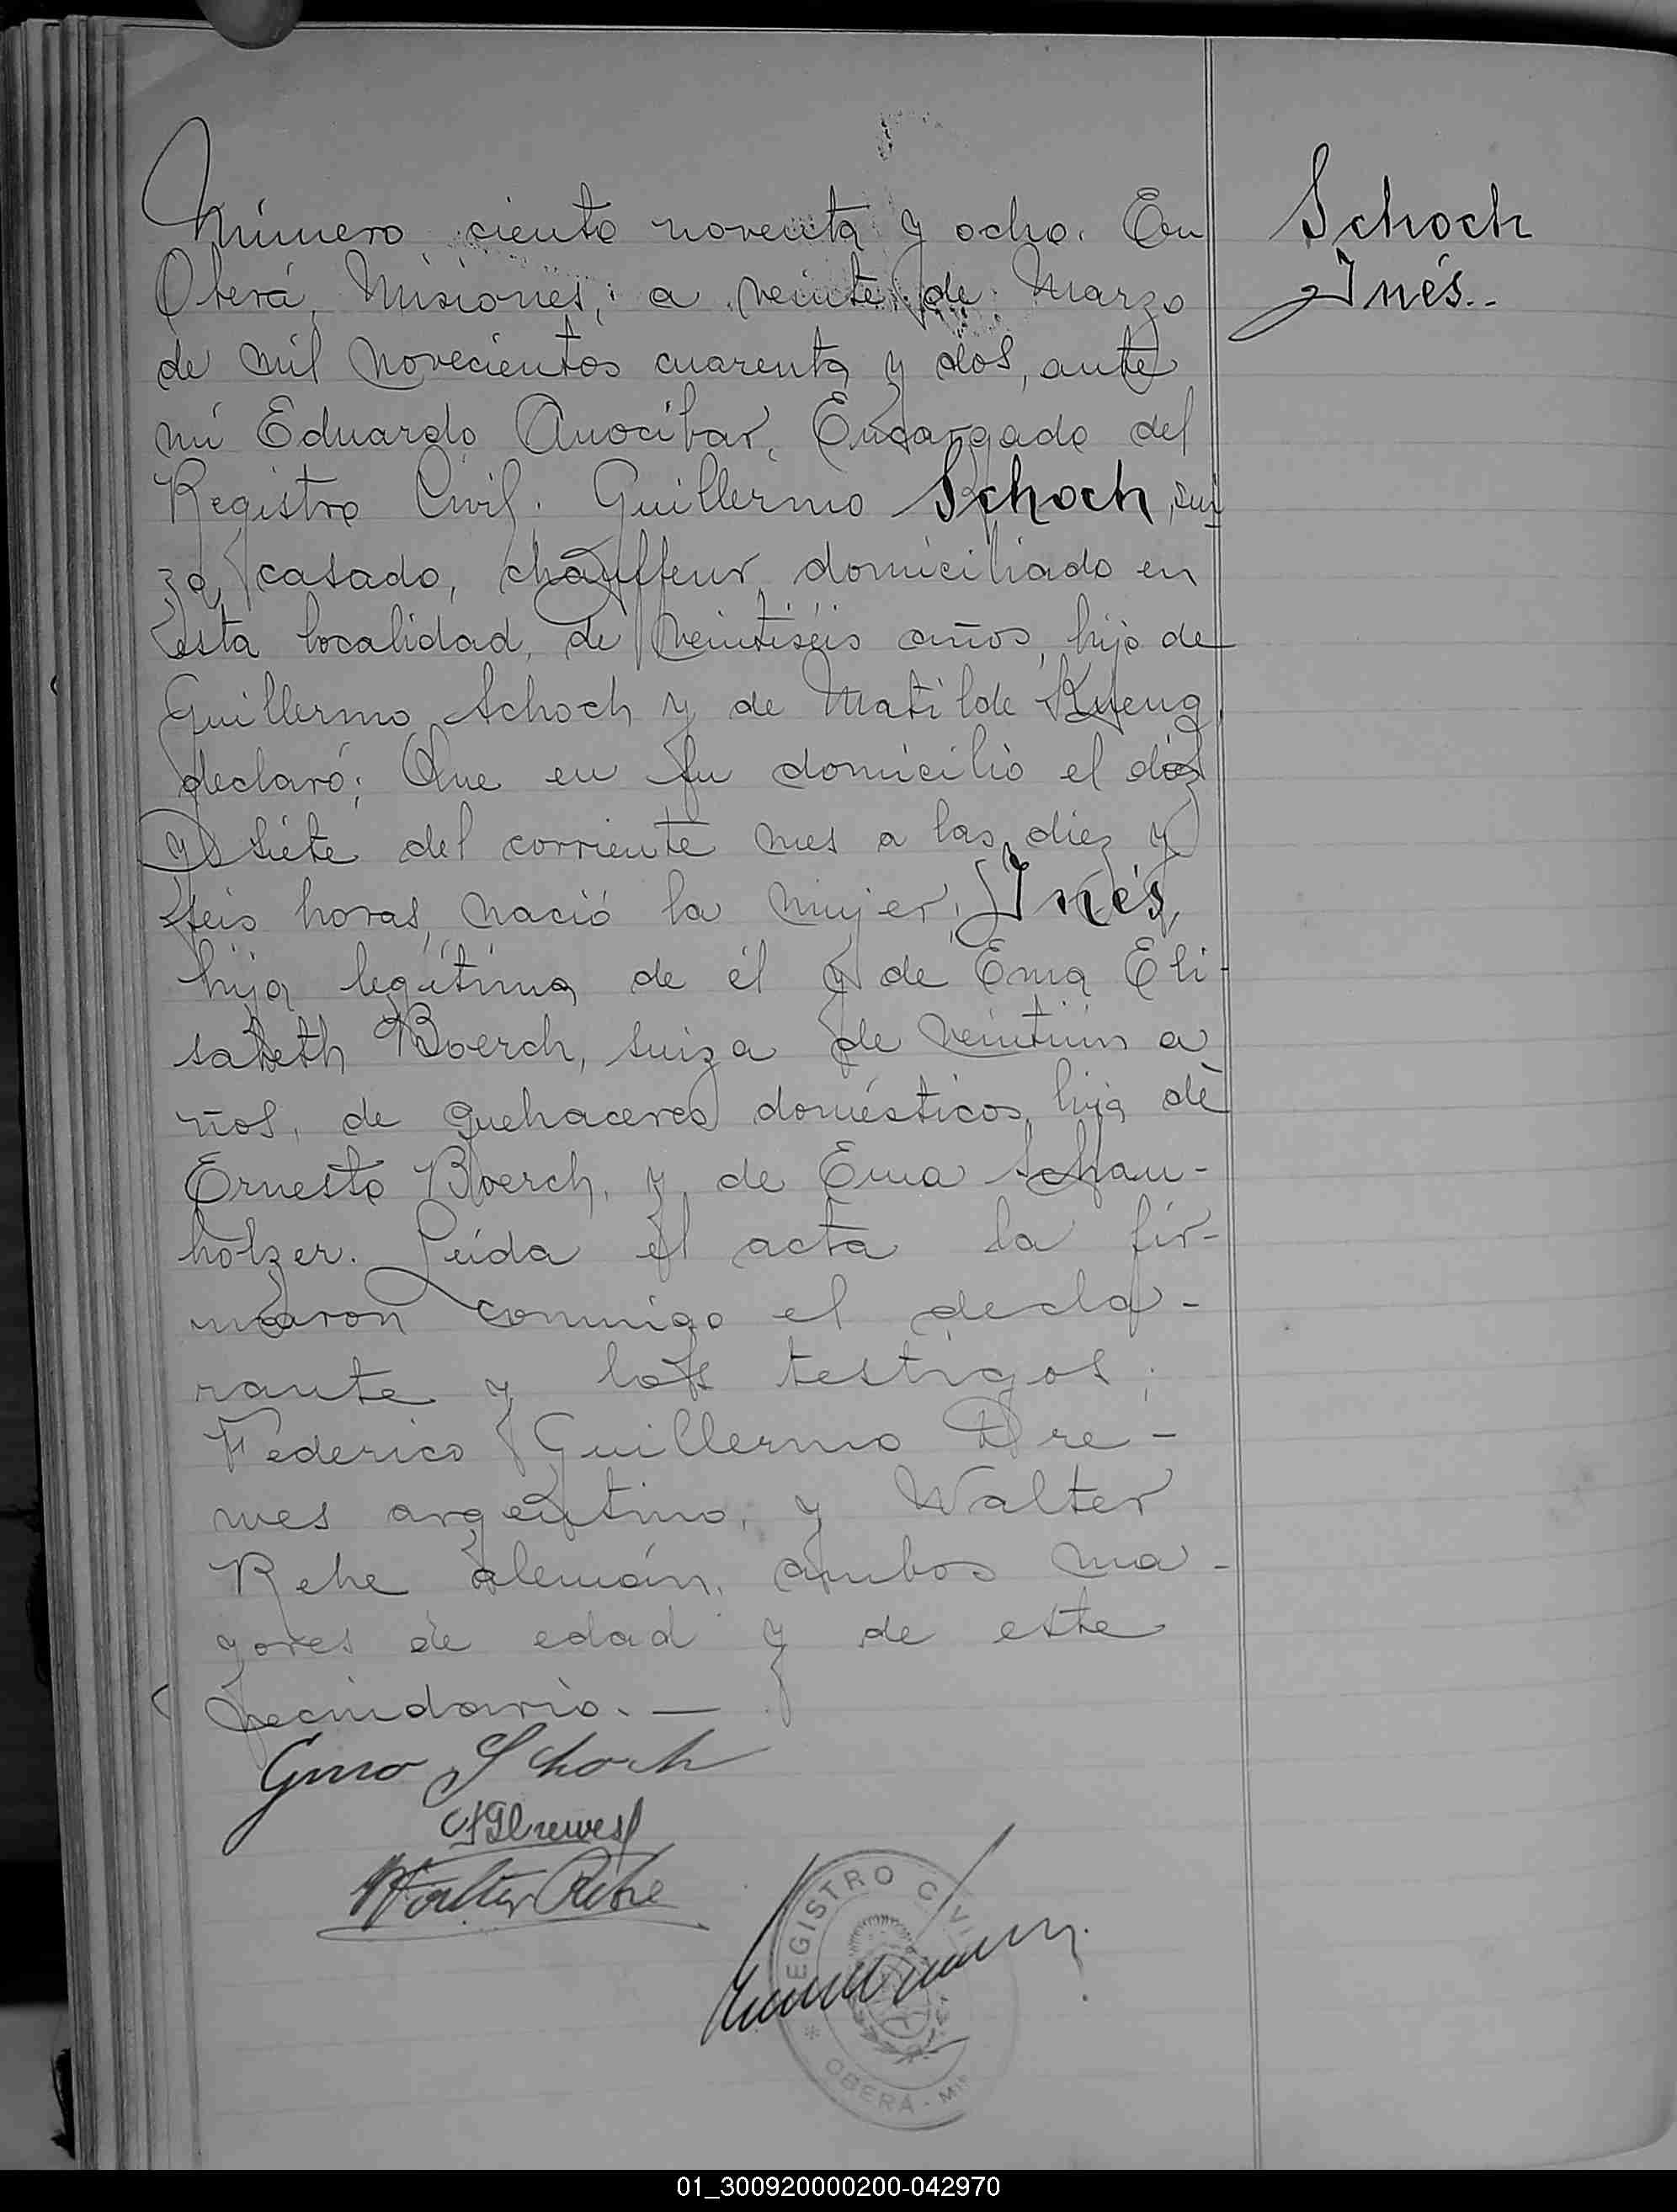 Número ciento noventa y ocho. En
Oberá, Misiones, a veinte de Marzo
de mil novecientos cuarenta y dos, ante
mí Eduardo Anocibar, Encargado del
Registro Civil. Guillermo Schoch, sui
zo, casado, chauffeur, domiciliado en
esta localidad, de veintiséis años, hijo de
Guillermo Schoch y de Matilde Kueng,
declaró: Que en su domicilio el diez
y siete del corriente mes a las diez y
seis horas, nació la mujer, Inés,
hija legítima de él y de Ema Eli-
sabeth Boerch, suiza de veintiún a
ños, de quehaceres domésticos, hija de
Ernesto Boerch, y de Ema Schau-
holzer. Leída el acta la fir-
maron conmigo el decla-
rante y los testigos;
Federico Guillermo Dre-
wes argentino, y Walter
Rehe alemán, ambos ma-
yores de edad y de este
vecindario.—
Gmo Schoch
Walter Rehe
Schoch
Inés.-
REGISTRO CIVIL
OBERÁ - MIS
01_300920000200-042970